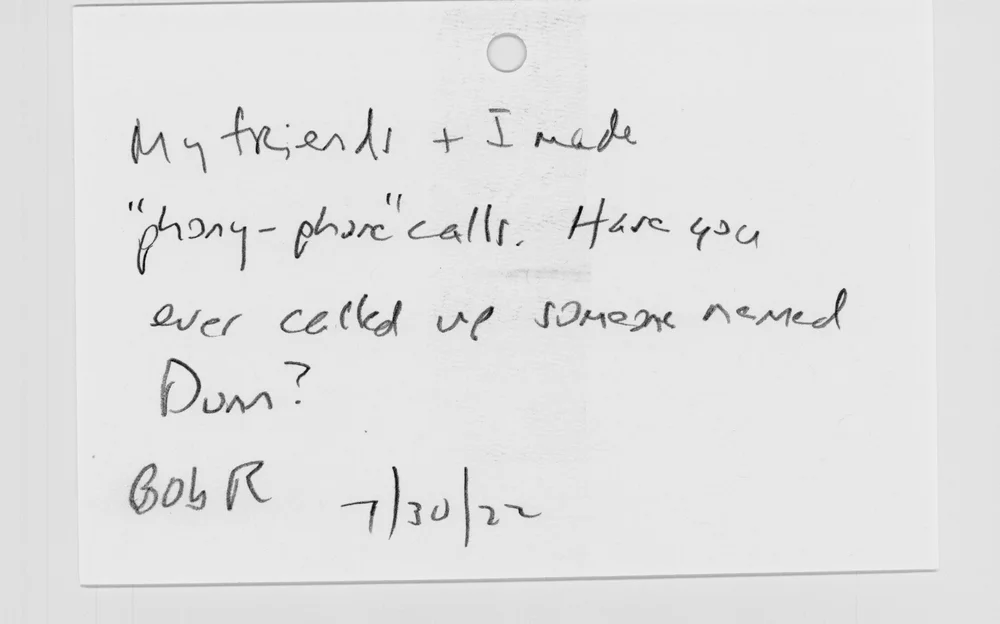 My friends + I made
"phony-phone" calls. Have you
ever called up someone named
Dunn?
Bob R 7/30/22